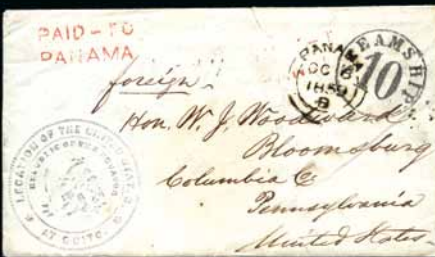 PAID-TO
PANAMA
PANAMA
OC 6
1859
B
STEAMSHIP
10
foreign
Hon. W. J. Woodward
Bloomsburg
Columbia Co
Pennsylvania
United States
LEGATION OF THE UNITED STATES
AT QUITO.